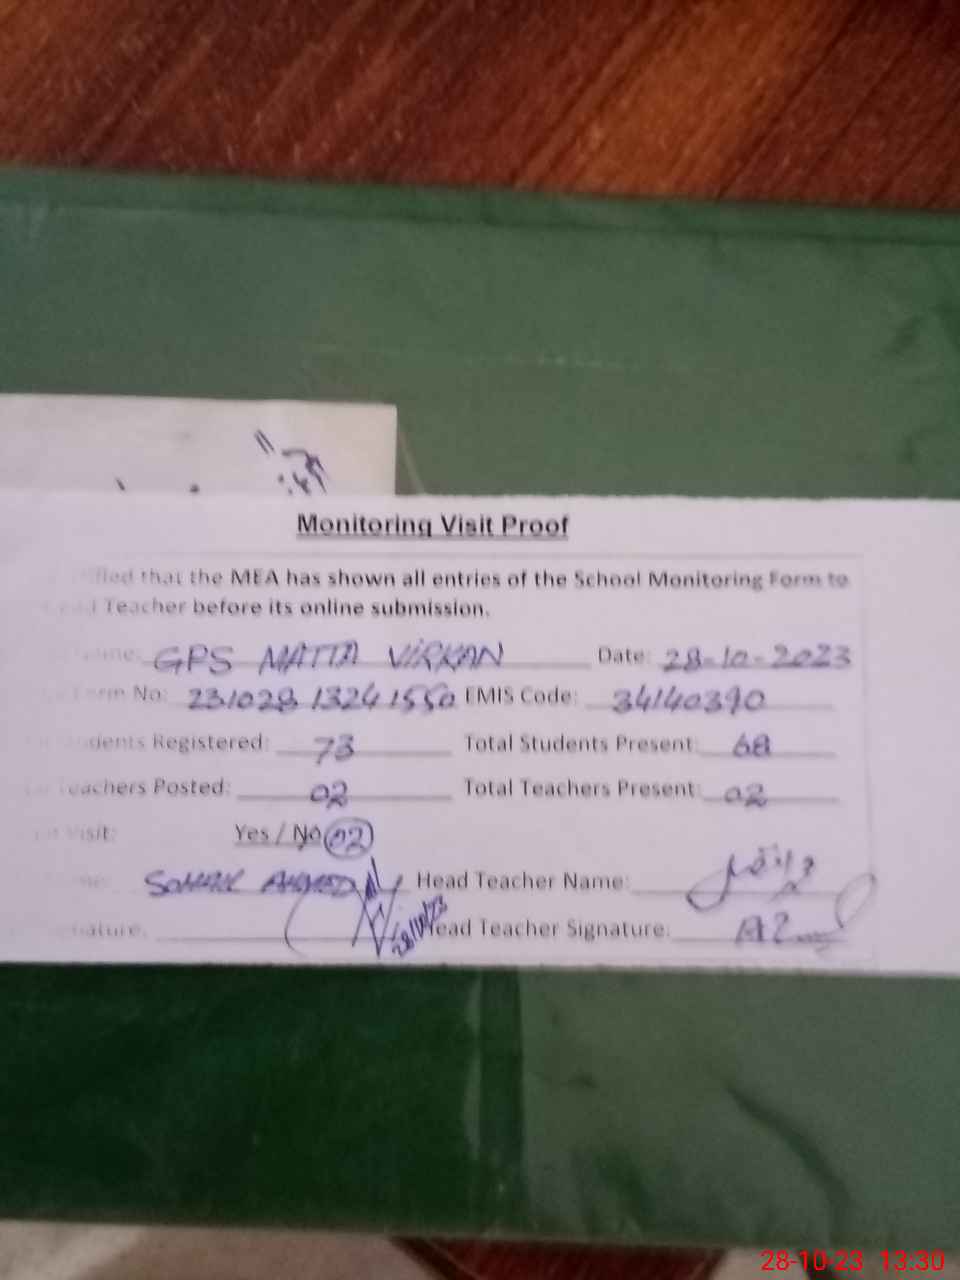 Monitoring Visit Proof
that the MEA has shown all entries of the School Monitoring Form to
Teacher before its online submission.
GPS MATTA VIRKAN Date: 28-10-2023
Form No: 231028 13241550 EMIS Code: 34140390
Registered: 73 Total Students Present: 68
Teachers Posted: 02 Total Teachers Present: 02
Visit: Yes / No 02
AHMED Head Teacher Name:
28/10/23 Head Teacher Signature:
28-10-23 13:30